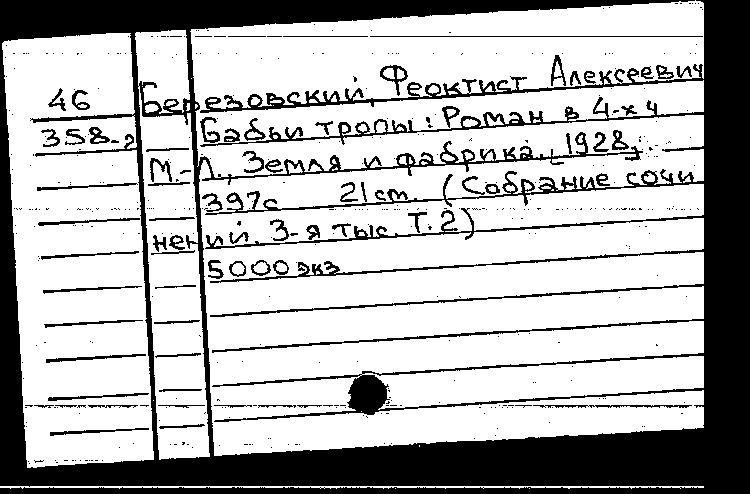 46 Березовский, Феоктист Алексеевич
358-2 Бабьи тропы: Роман в 4-х ч
М.-Л., Земля и фабрика, [1928].
397с 21 см. (Собрание сочи
нений. 3-я тыс. Т.2)
5000 экз